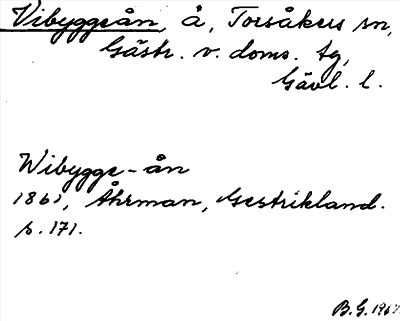 Vibyggeån, å, Torsåkers sn,
Gästr. v. doms. tg,
Gävl. l.
Wibygge-ån
1861, Åhrman, Gestrikland.
s. 171.
B.G. 1967.